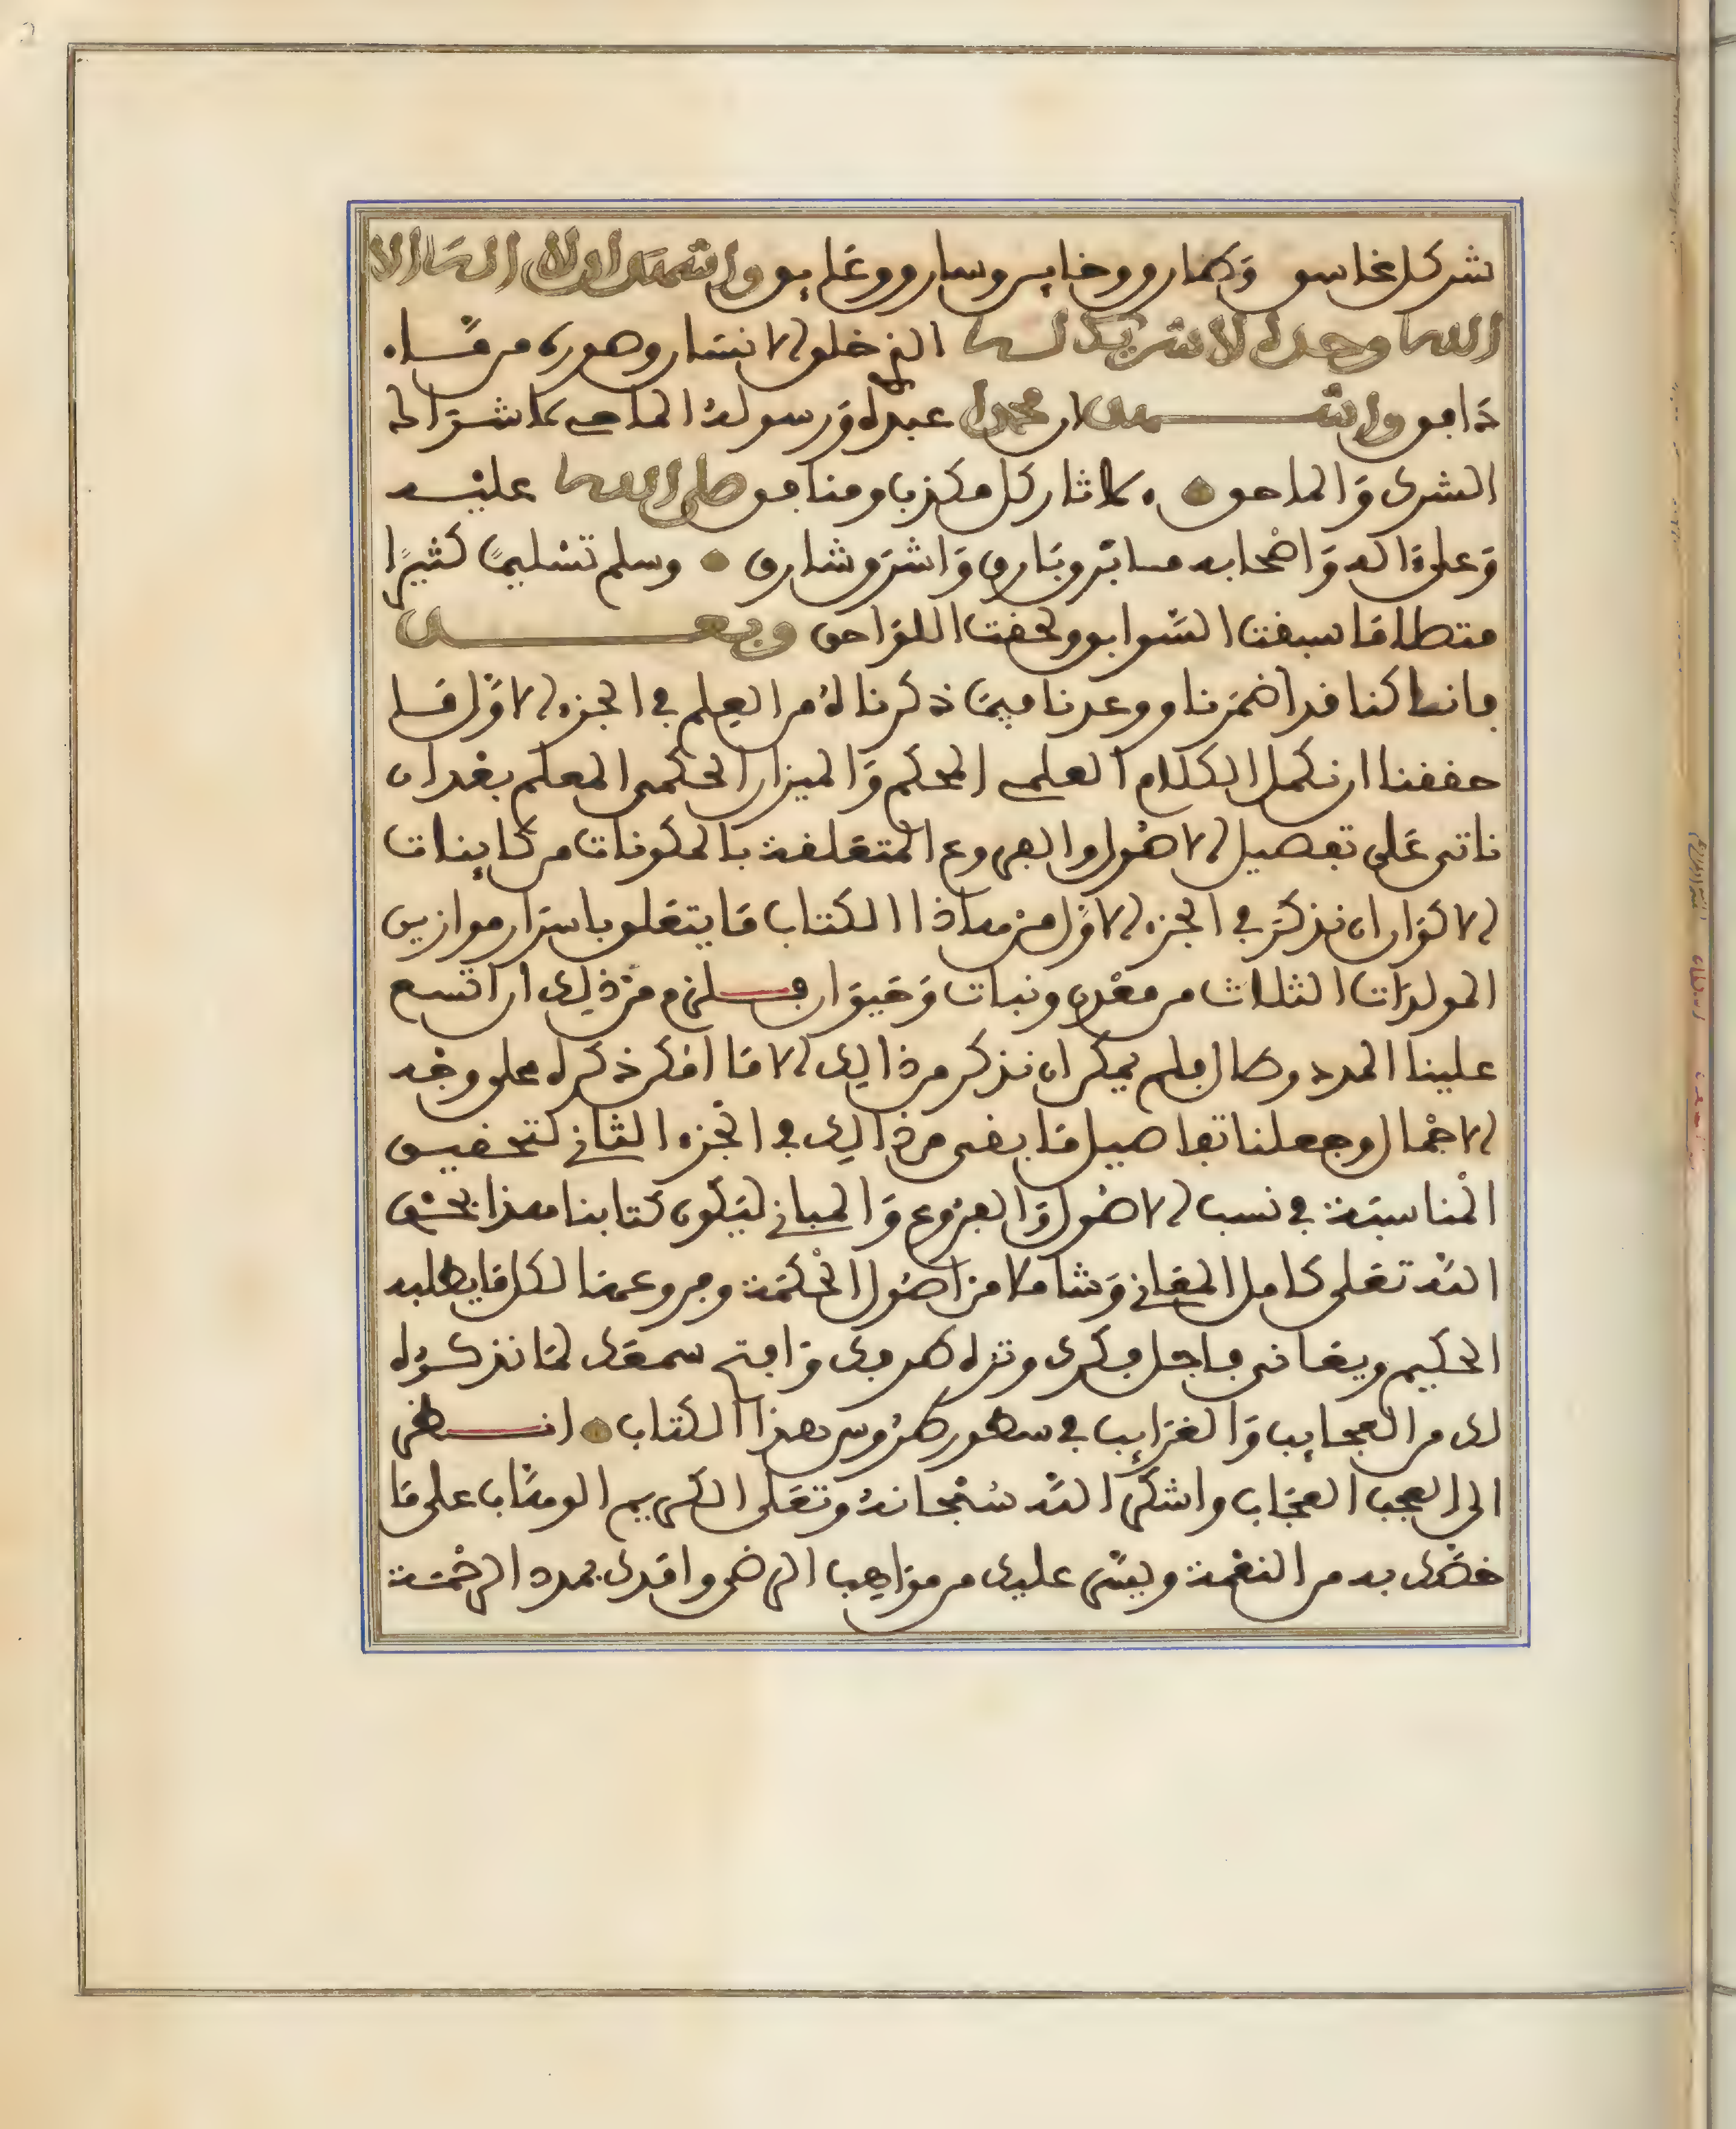 شر كل غاسق وطارق وخاين وسارق وعايق واشهد ان لا اله الا
الله وحده لا شريك له الذي خلق الانسان وصوره من ماء
دافق واشهد ان محمدا عبده ورسوله الماحي لاشراك
الشرك والماحق لاثار كل مكذب ومنافق صلى الله عليه
وعلى ءاله واصحابه ما بر وبارق واشرق وشارق وسلم تسليما كثيرا
متصلا ما سبقت السوابق ولحقت اللواحق وبعد
فانا كنا قد اضمرنا ووعدنا فيما ذكرناه من العلم في الجزء الاول ما
حققنا ان نكمل الكلام العلمي المحكم والميزان الحكمي المعلم بغد ان
ناتي على تفصيل الاصول والفروع المتعلقة بالمكونات من كاينات
الاكوان ان نذكر في الجزء الاول من هاذا الكتاب ما يتعلق باسرار موازين
المولدات الثلاث من معدن ونبات وحيوان فلزم من ذلك ان اتسع
علينا المدد وطال فلم يمكن ان نذكر من ذالك الا ما امكن ذكره على وجه
الاجمال وجعلنا تفاصيل ما بقي من ذالك في الجزء الثاني لتحقيق
المناسبة في نسب الاصول والفروع والمباني ليكون كتابنا هذا بحق
الله تعلى كامل المعاني وشاملا من اصول الحكمة وفروعها لكل ما يطلبه
الحكيم ويعاني فاجل فكرك ونزه طرفك وافتح سمعك لما نذكره
لك من العجايب والغرايب في سطور طروس هذا الكتاب انظر
الى العجب العجاب واشكر الله سبحانه وتعلى الكريم الوهاب على ما
خصك به من النعمة ويسر عليك من مواهب الرضى وامدك بمدد الرحمة